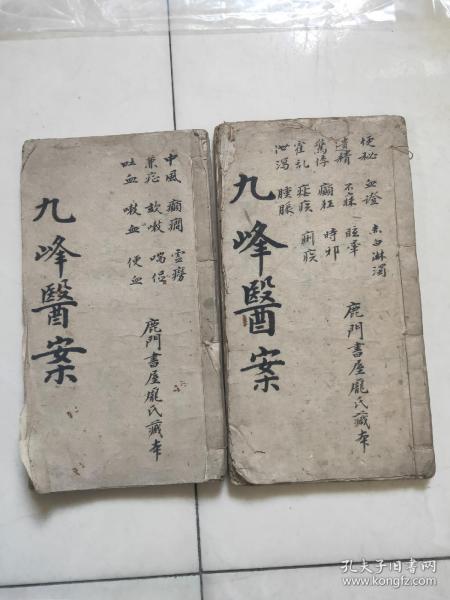 便秘 血證 赤白淋濁
遺精 不寐 眩暈
驚悸 癲狂 時邪
霍乱 瘧疾 痢疾
泄瀉 腫脹
九峰醫案
鹿門書屋龐氏藏本
中風 癲癇 虛癆
咳嗽 喘促
吐血 嗽血 便血
九峰醫案
鹿門書屋龐氏藏本
孔夫子旧书网
www.kongfz.com